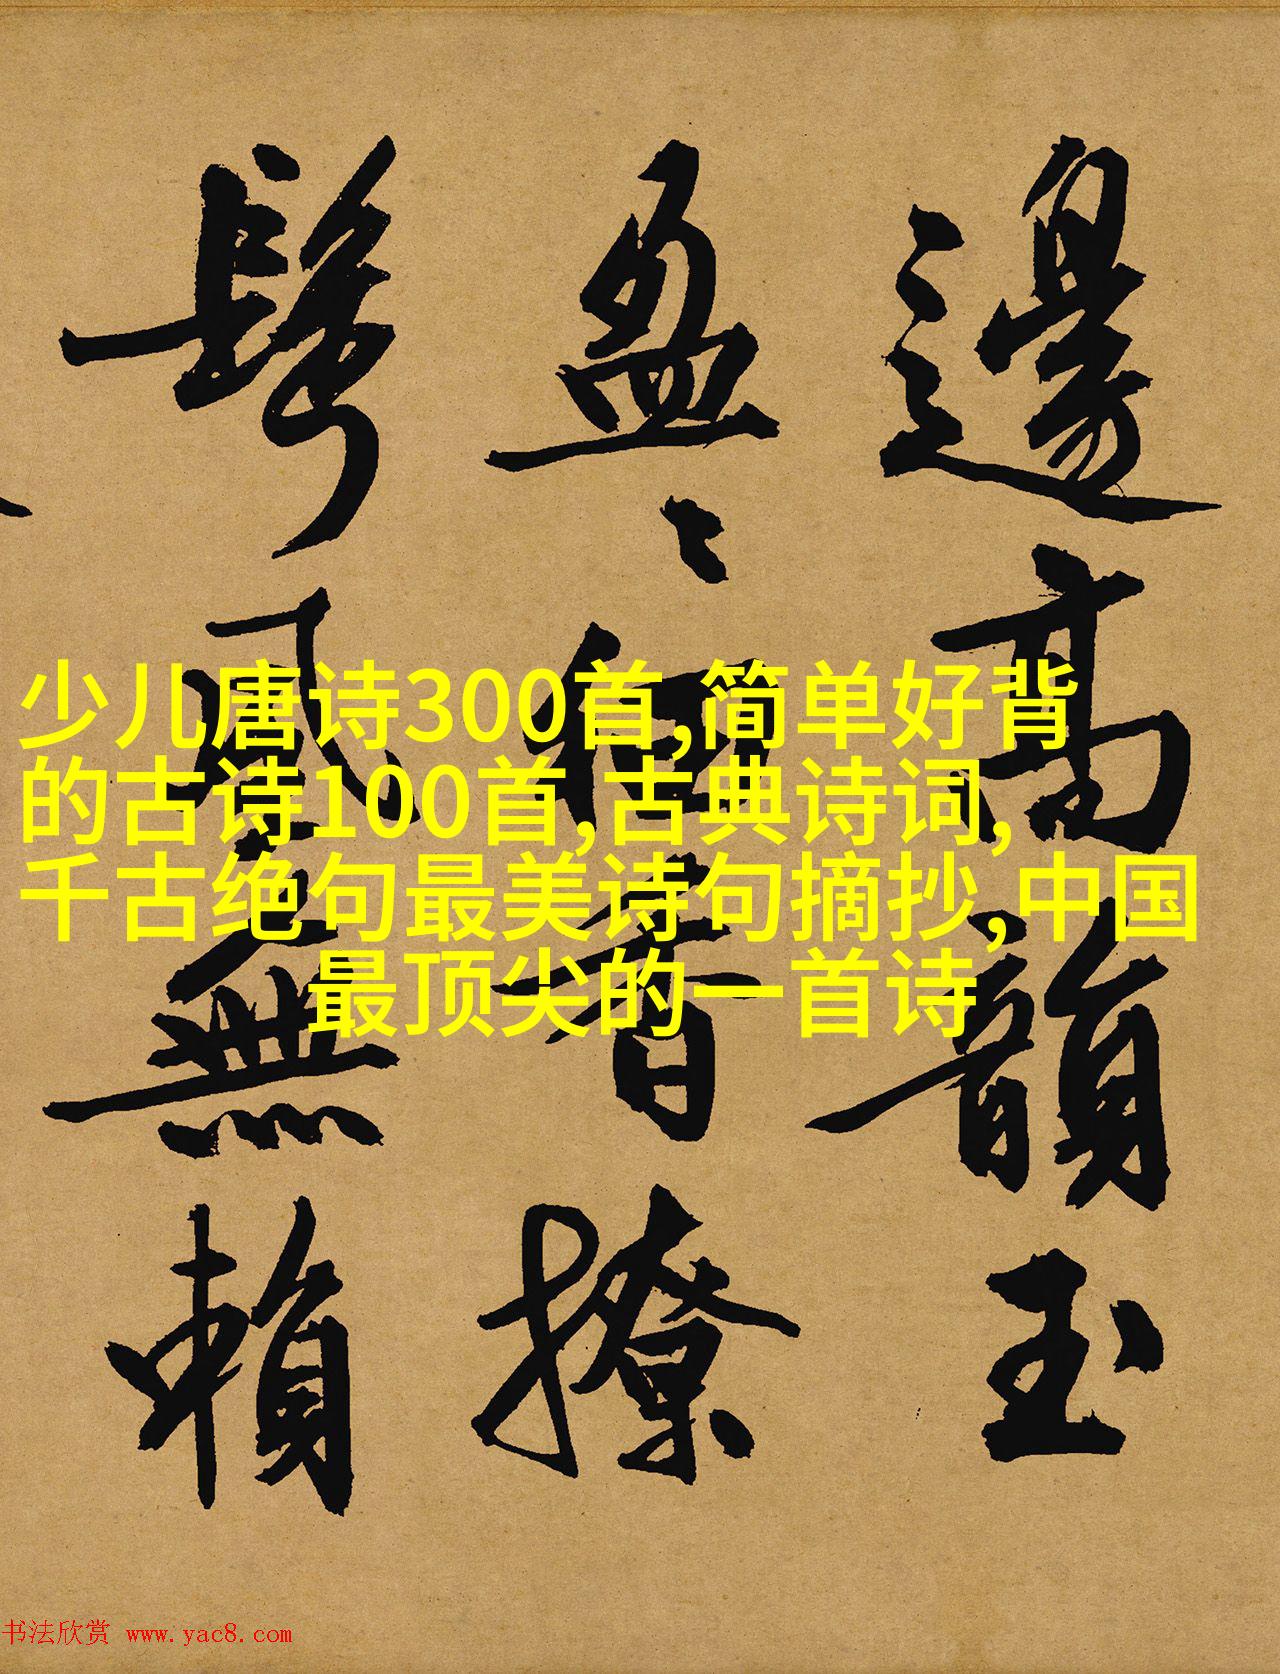 邊高韻玉
盈〻細香撩
鬢風無賴
少儿唐诗300首,简单好背
的古诗100首,古典诗词,
千古绝句最美诗句摘抄,中国
最顶尖的一首诗
书法欣赏 www.yac8.com